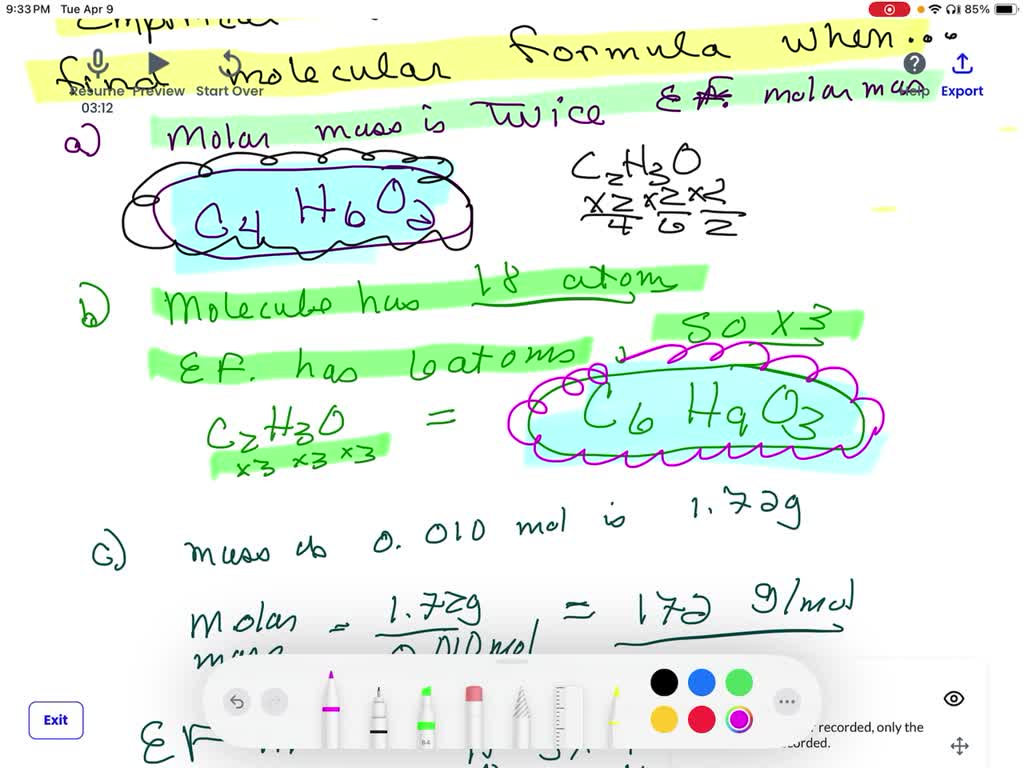 9:33 PM Tue Apr 9
85%
Empirical
find molecular formula when...
Resume Preview Start Over
Help Export
03:12
a) Molar mass is Twice E.F. molar mass
C2H3O
×2 ×2 ×2
4 6 2
C4 H6O2
b) Molecule has 18 atom
SO ×3
EF. has 6 atoms
C2H3O = C6 H9 O3
×3 ×3 ×3
c) mass is 0.010 mol is 1.72g
molar = 1.72g = 172 g/mol
mass 0.010 mol
Exit
recorded, only the
EF